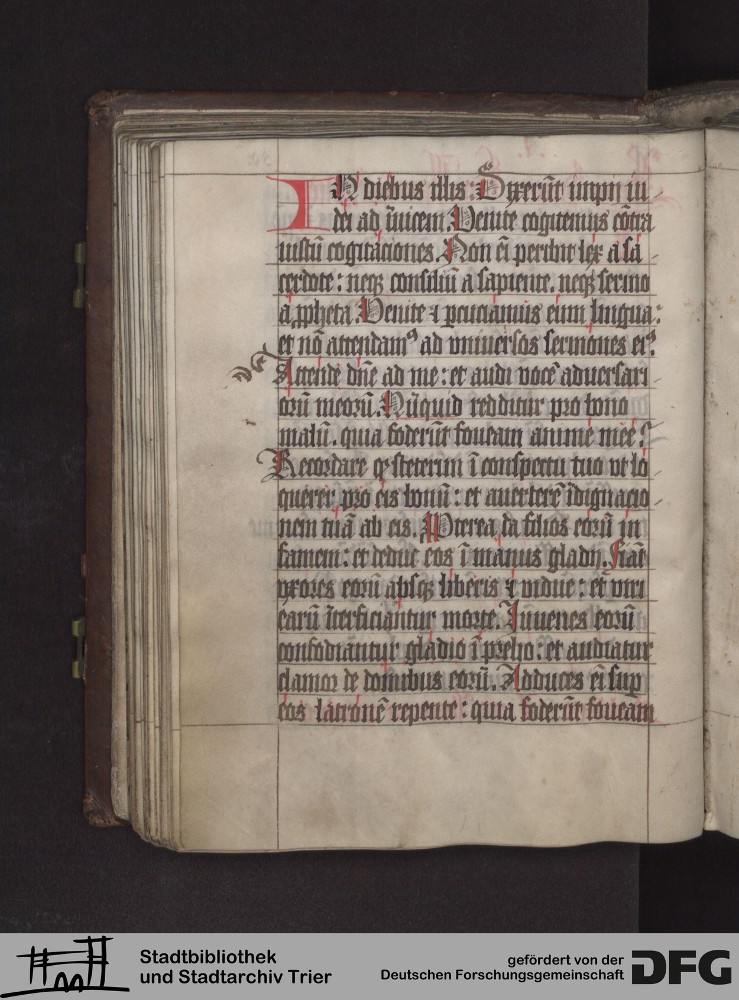 IN diebus illis: Dixerūt impij iu
dei ad ĩuicem. Venite cogitemus cōtra
iustū cogitaciones. Non eī peribit lex a sa
cerdote: neqꝫ consiliū a sapiente. neqꝫ sermo
a ꝓpheta. Venite ⁊ ꝑcuciamus eum lingua:
et nō attendamꝰ ad vniuersos sermones eiꝰ.
Attende dn̄e ad me: et audi vocē aduersari
orū meorū. Nūquid redditur pro bono
malū. quia foderūt foueam anime mee?
Recordare qꝫ steterim ī conspectu tuo vt lo
querer pro eis bonū: et auerterē īdignacio
nem tuā ab eis. Ꝓpterea da filios eorū in
famem: et deduc eos ī manus gladij. Fiāt
vxores eorū absqꝫ liberis ⁊ vidue: et viri
earū īterficiantur morte. Iuuenes eorū
confodiantur gladio ī prelio: et audiatur
clamor de domibus eorū. Adduces eī suꝑ
eos latronē repente: quia foderūt foueam
Stadtbibliothek
und Stadtarchiv Trier
gefördert von der
Deutschen Forschungsgemeinschaft
DFG